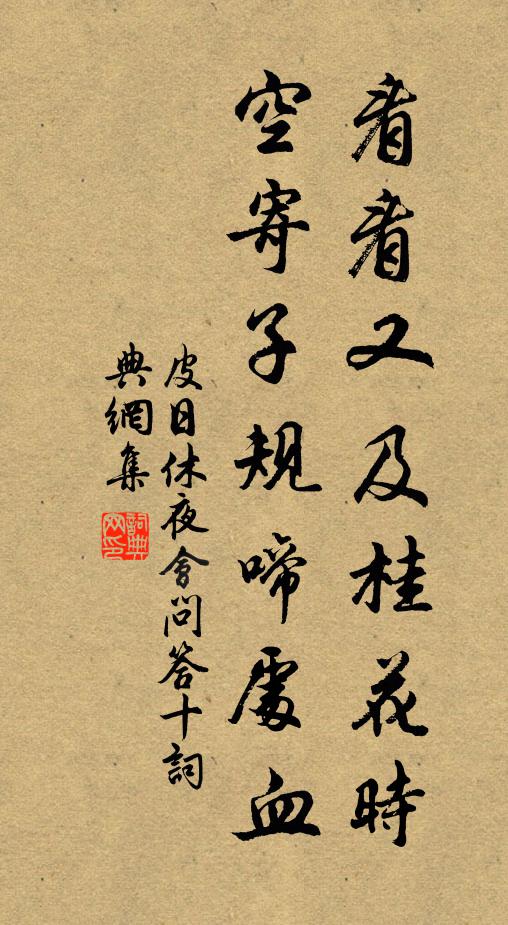 看看又及桂花時
空寄子規啼處血
皮日休夜會問答十詞
典網集
詞典網印